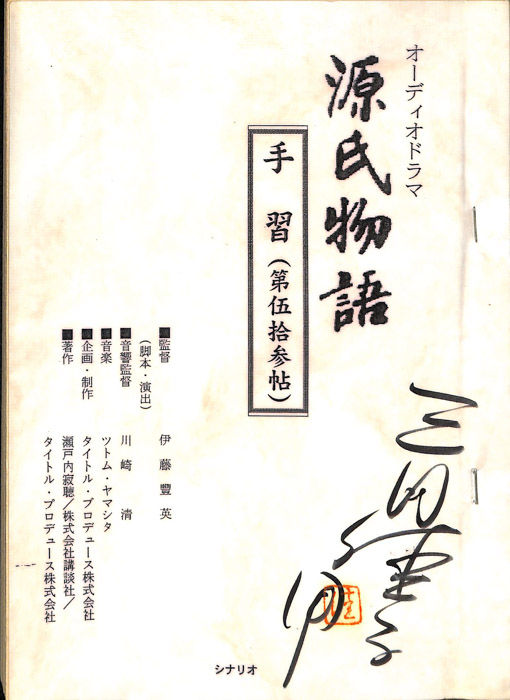 オーディオドラマ
源氏物語
手習（第伍拾参帖）
■監督　伊藤豐英
（脚本・演出）
■音響監督　川崎清
■音楽　ツトム・ヤマシタ
■企画・制作　タイトル・プロデュース株式会社
■著作　瀬戸内寂聴／株式会社講談社／
タイトル・プロデュース株式会社
シナリオ